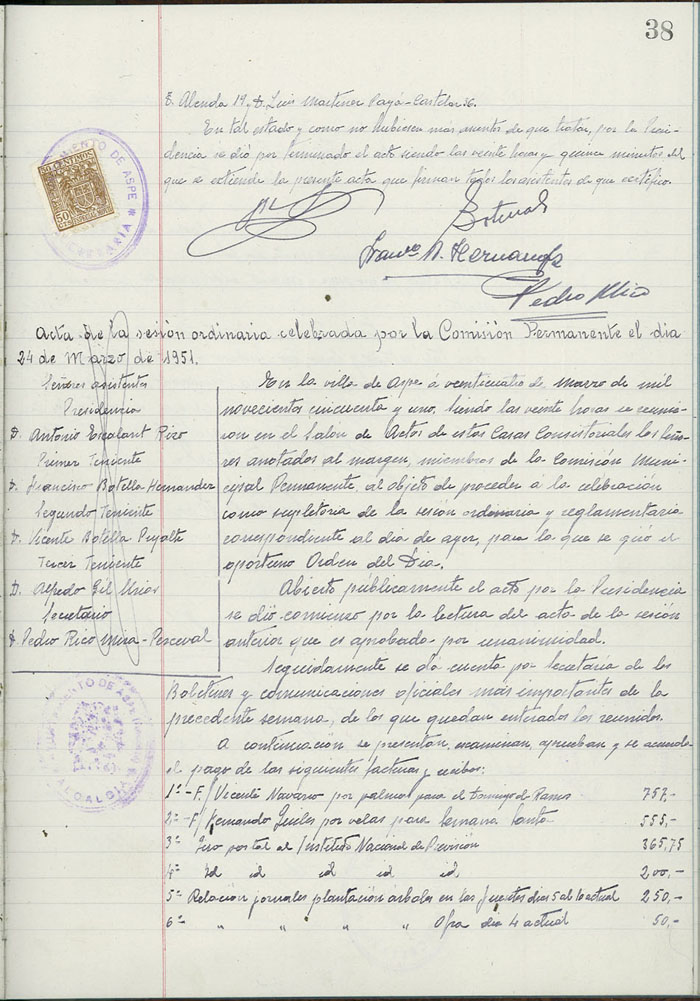 38
E. Alenda 19 y D. Luis Martinez Payá - Castelar 36.
En tal estado y como no hubiesen más asuntos de que tratar, por la Presi-
dencia se dió por terminado el acto siendo las veinte horas y quince minutos del
que se extiende la presente acta que firman todos los asistentes de que certifico.
AYUNTAMIENTO DE ASPE * SECRETARIA
50 CENTIMOS
50
Botella
Franco B. Hernandez
Pedro Rico
Acta de la sesión ordinaria celebrada por la Comisión Permanente el dia
24 de Marzo de 1951.
Señores asistentes
Presidencia
D. Antonio Escalant Rico
Primer Teniente
D. Francisco Botella Hernandez
Segundo Teniente
D. Vicente Botella Puyalte
Tercer Teniente
D. Alfredo Gil Mias
Secretario
D. Pedro Rico Mira-Perceval
AYUNTAMIENTO DE ASPE
ALCALDIA
En la villa de Aspe á veinticuatro de marzo de mil
novecientos cincuenta y uno, siendo las veinte horas se reunie-
ron en el Salón de Actos de estas Casas Consistoriales los Seño-
res anotados al margen, miembros de la Comisión Muni-
cipal Permanente, al objeto de proceder a la celebración
como supletoria de la sesión ordinaria y reglamentaria
correspondiente al dia de ayer, para la que se giró el
oportuno Orden del Dia.
Abierto públicamente el acto por la Presidencia
se dió comienzo por la lectura del acta de la sesión
anterior que es aprobada por unanimidad.
Seguidamente se da cuenta por Secretaria de los
Boletines y comunicaciones oficiales más importantes de la
precedente semana, de los que quedan enterados los reunidos.
A continuación se presentan, examinan, aprueban y se acuerda
el pago de las siguientes facturas y recibos:
1º - F/ Vicente Navarro por palmas para el Domingo de Ramos 757,-
2º - F/ Hernando por velas para Semana Santa 555,-
3º Giro postal al Instituto Nacional de Previsión 365,75
4º Id id id id id 200,-
5º Relación jornales plantación árboles en las fuentes dias 5 al 10 actual 250,-
6º " " " " dia 4 actual 50,-